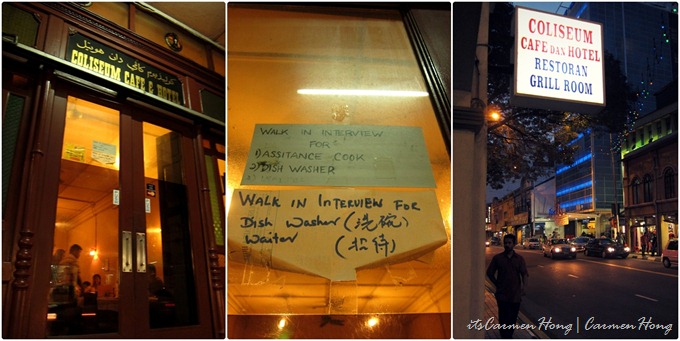 كافي دان هوتيل
COLISEUM CAFE & HOTEL
WALK IN INTERVIEW
FOR
1) ASSITANCE - COOK
2) DISH WASHER
WALK IN INTERVIEW FOR
Dish Washer (洗碗)
Waiter (招待)
COLISEUM
CAFE DAN HOTEL
RESTORAN
GRILL ROOM
itsCarmenHong | Carmen Hong